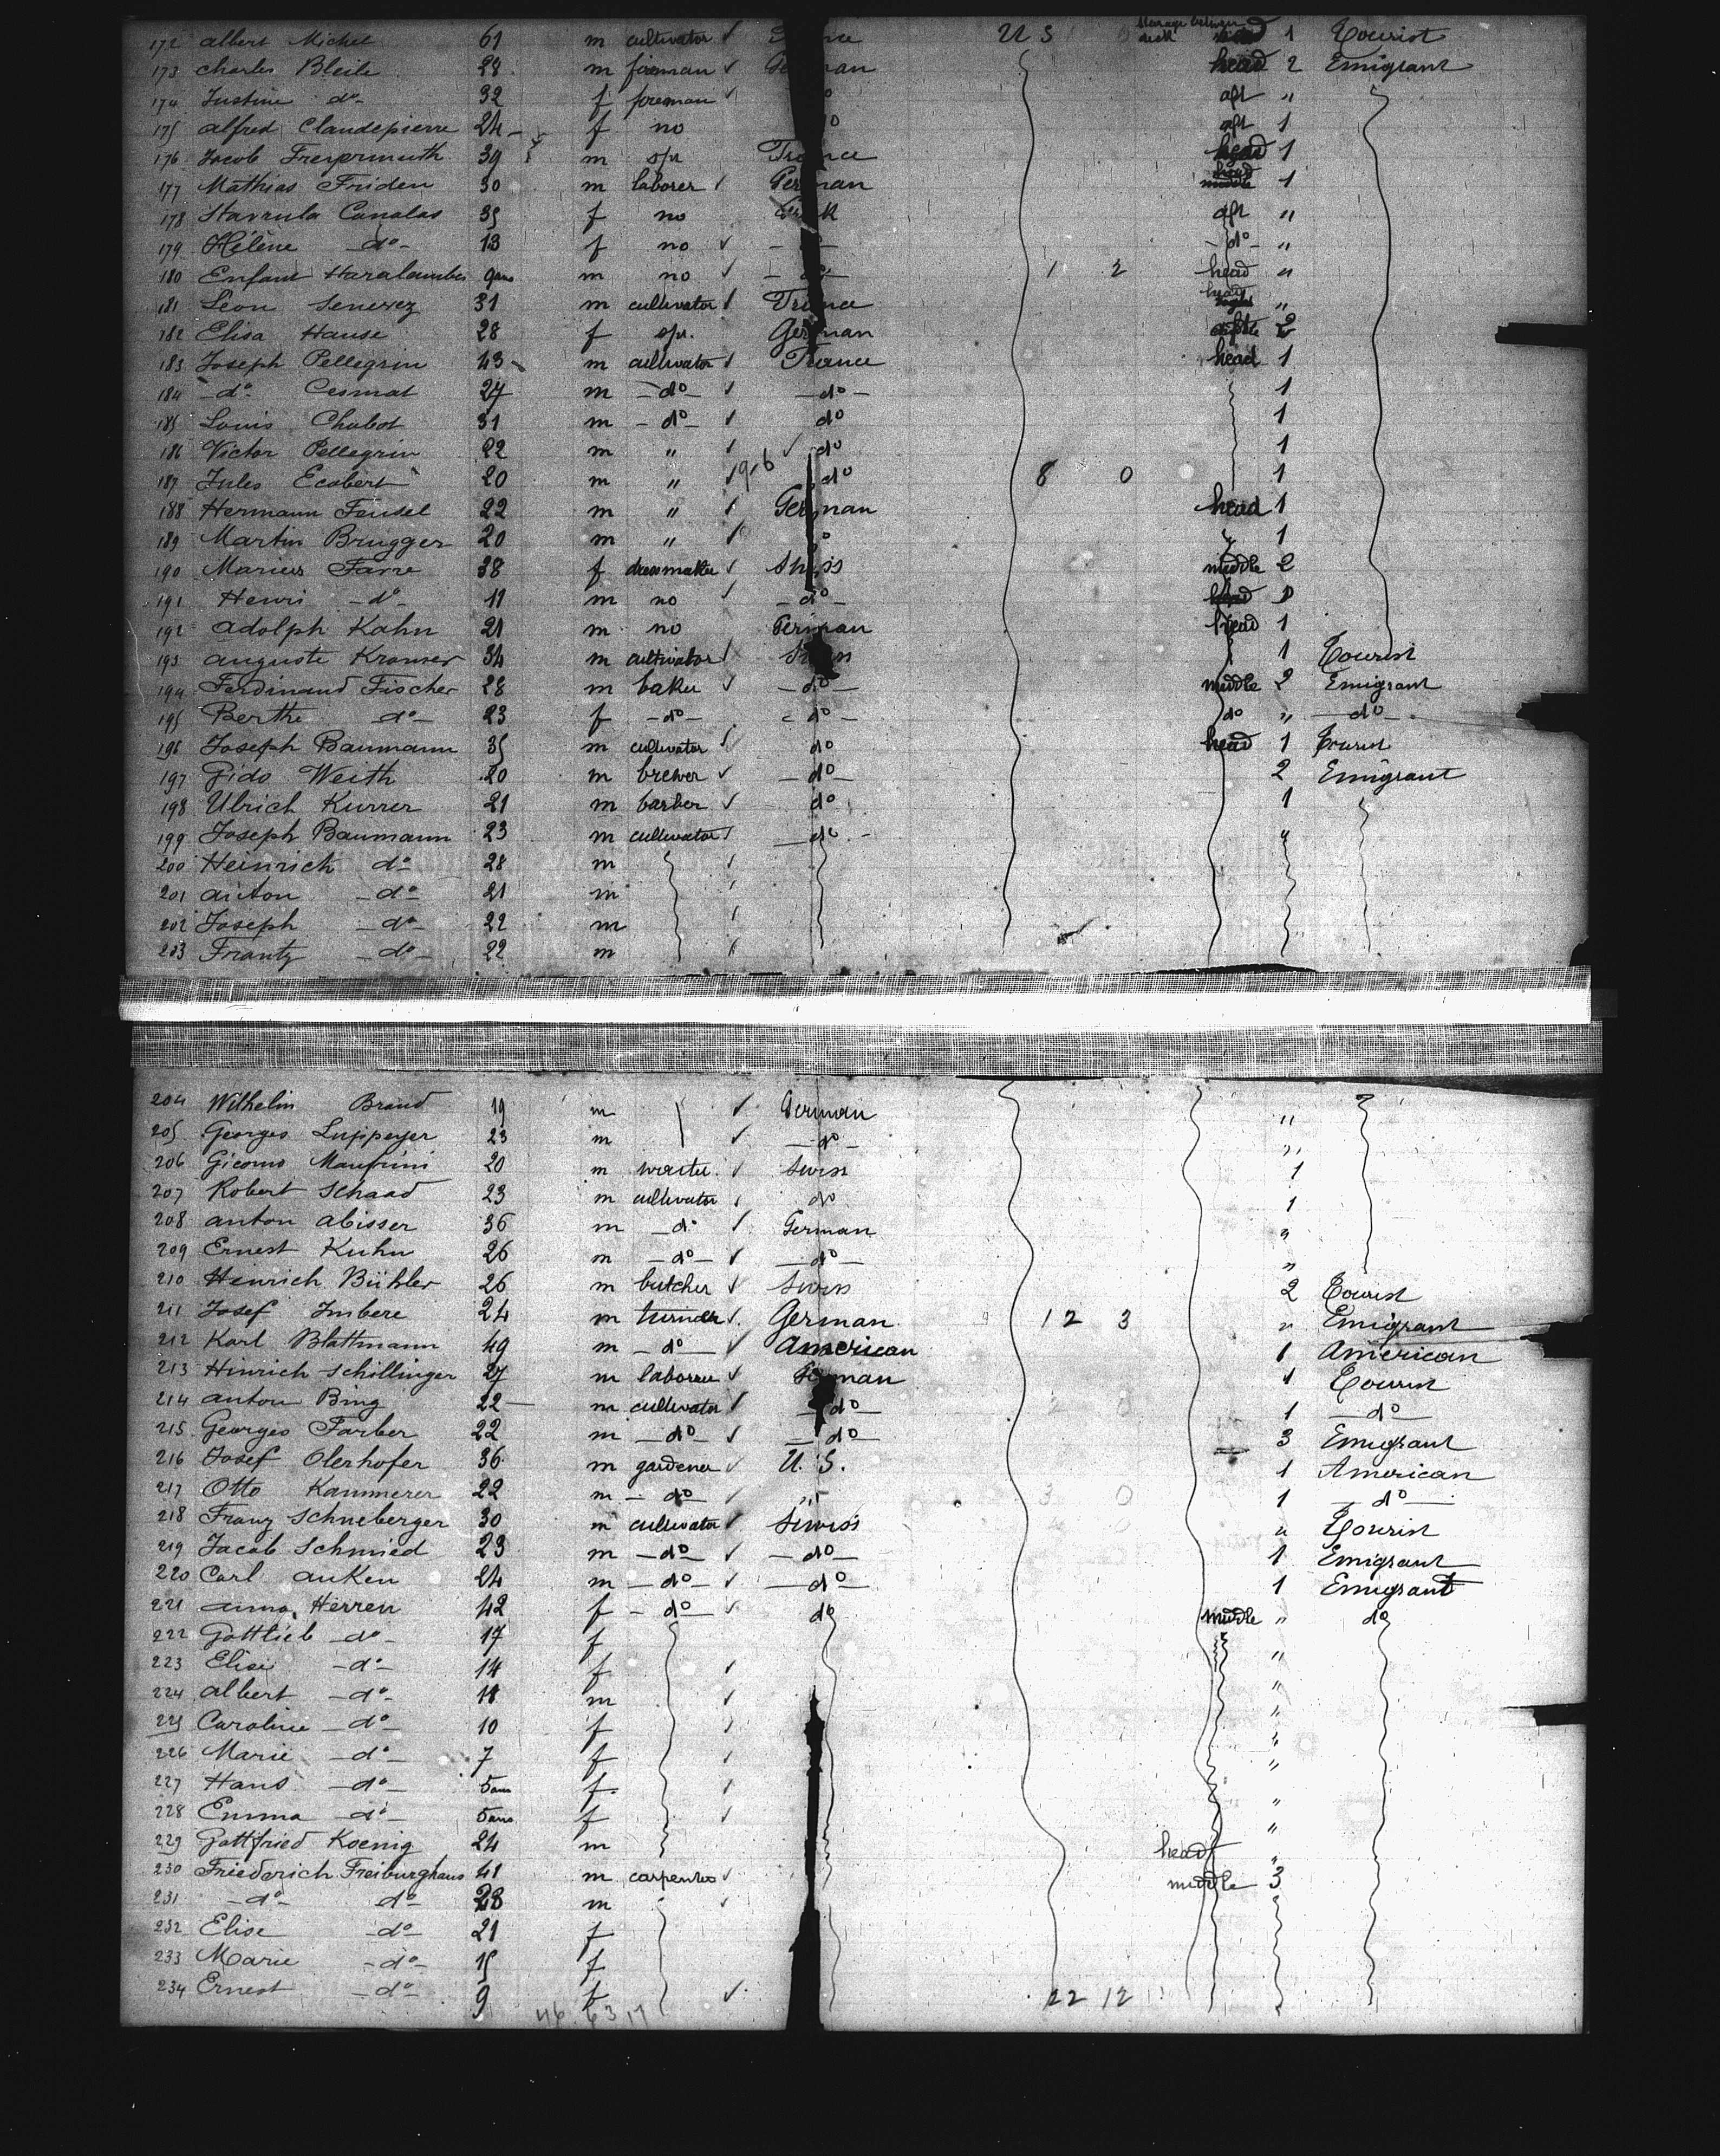 172 albert Michel 61 m cultivator ✓ 22 3 0 Steerage between deck 1 Tourist
173 charles Bleile 28 m foreman ✓ German head 2 Emigrant
174 Justine do 32 f foreman ✓ aft "
175 alfred Claudepierre 24 f no do aft 1
176 Jacob Freyermuth 39 m opr France head 1
177 Mathias Friden 30 m laborer ✓ German head middle 1
178 Stavrula Canalas 35 f no aft "
179 Hélène do 13 f no ✓ do do "
180 Enfant Haralambes 9 ans m no ✓ do 1 2 head "
181 Léon Senerez 31 m cultivator ✓ France head "
182 Elisa Hause 28 f opr. German 2
183 Joseph Pellegrin 43 m cultivator ✓ France head 1
184 do Cesmat 27 m do ✓ do 1
185 Louis Chabot 31 m do ✓ do 1
186 Victor Pellegrin 22 m " ✓ do 1
187 Jules Ecobert 20 m " ✓ 9-6 do 8 0 1
188 Hermann Feusel 22 m " ✓ German head 1
189 Martin Brugger 20 m " ✓ 1
190 Marius Favre 38 f dressmaker ✓ Swiss middle 2
191 Henri do 11 m no ✓ do head
192 adolph Kahn 21 m no German head 1
193 auguste Kromer 34 m cultivator ✓ 1 Tourist
194 Ferdinand Fischer 28 m baker ✓ do middle 2 Emigrant
195 Berthe do 23 f do do do " do
196 Joseph Baumann 35 m cultivator ✓ do head 1 Tourist
197 Gido Weith 20 m brewer ✓ do 2 Emigrant
198 Ulrich Kurrer 21 m barber ✓ do 1
199 Joseph Baumann 23 m cultivator ✓ do "
200 Heinrich do 28 m ✓
201 anton do 21 m ✓
202 Joseph do 22 m ✓
203 Frantz do 22 m ✓
204 Wilhelm Brand 19 m ✓ German "
205 Georges Luppeyer 23 m ✓ do "
206 Gicomo Manfrini 20 m waiter ✓ Swiss 1
207 Robert Schaad 23 m cultivator ✓ do 1
208 anton abisser 36 m do ✓ German "
209 Ernest Kuhn 26 m do ✓ do "
210 Heinrich Bühler 26 m butcher ✓ Swiss 2 Tourist
211 Josef Imbere 24 m turner ✓ German 12 3 " Emigrant
212 Karl Blattmann 49 m do ✓ American 1 American
213 Hinrich Schillinger 27 m laborer ✓ German 1 Tourist
214 anton Bing 22 m cultivator ✓ do 1 do
215 Georges Farber 22 m do ✓ do 3 Emigrant
216 Josef Olerhofer 36 m gardener ✓ U. S. 1 American
217 Otto Kammerer 22 m do ✓ " 3 0 1 do
218 Franz Schneberger 30 m cultivator ✓ Swiss " Tourist
219 Jacob Schmied 23 m do ✓ do 1 Emigrant
220 Carl auken 24 m do ✓ do 1 Emigrant
221 anna Herren 42 f do ✓ do middle " do
222 Gottlieb do 17 f "
223 Elise do 14 f ✓ "
224 albert do 11 m ✓ "
225 Caroline do 10 f ✓ "
226 Marie do 7 f ✓ "
227 Hans do 5 ans f ✓ "
228 Emma do 5 ans f ✓ "
229 Gottfried Koenig 24 m head "
230 Friederich Freiburghaus 41 m carpenter ✓ middle 3
231 do do 28 m ✓
232 Elise do 21 f
233 Marie do 15 f
234 Ernest do 9 f ✓ 22 12
46 63 17